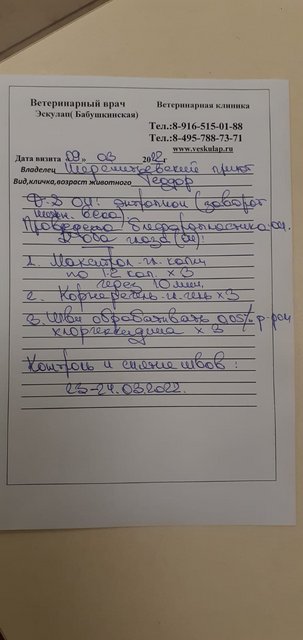 Ветеринарный врач
Эскулап( Бабушкинская)
Ветеринарная клиника
Тел.:8-916-515-01-88
Тел.:8-495-788-73-71
www.veskulap.ru
Дата визита „09„ 03 2022г
Владелец Шереметьевский приют
Вид,кличка,возраст животного Теодор
Д-З OU: энтропион (заворот
нижн. века)
Проведена блефаропластика
глаза
1. Макситрол гл. капли
по 1-2 кап. х3
через 10 мин.
2. Корнерегель гл. гель х3
3. Швы обрабатывать 0,05% р-ром
хлоргексидина х 3
Контроль и снятие швов:
23-24.03.2022.